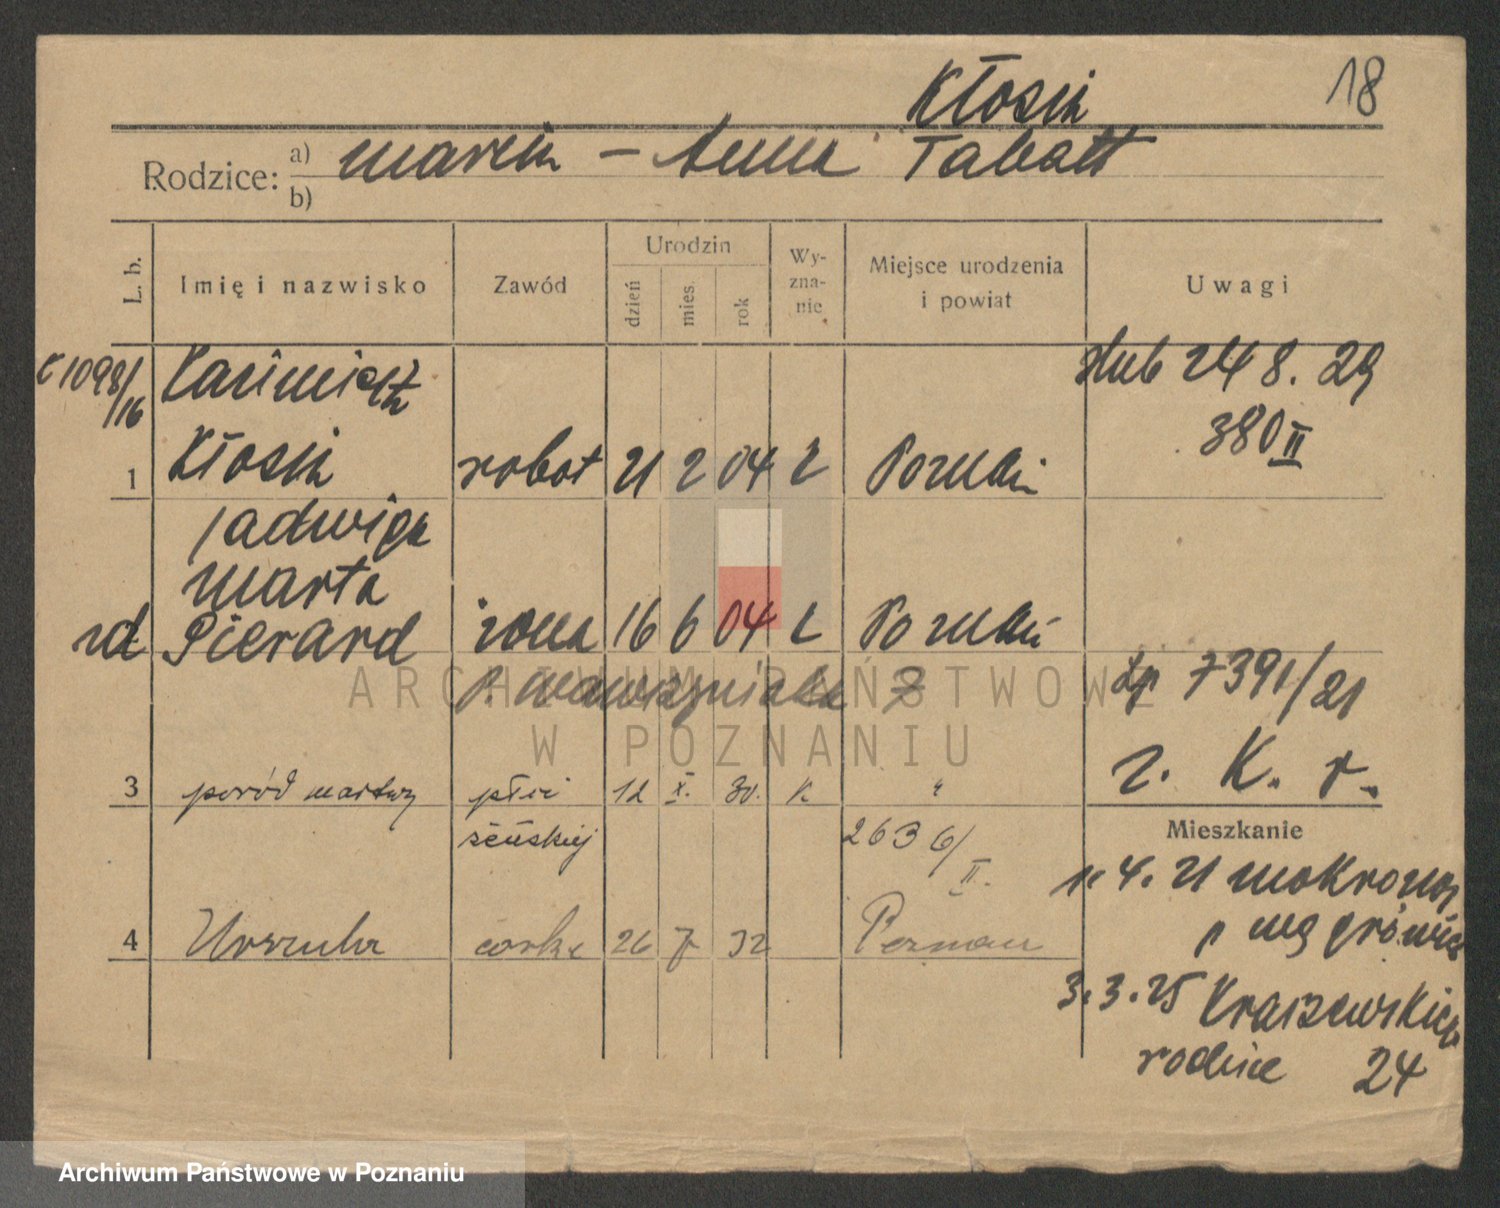 18
Kłosin
Rodzice: a) Marcin – Anna Tabatt
b)
L. b. Imię i nazwisko Zawód Urodzin dzień mies. rok Wy-zna-nie Miejsce urodzenia i powiat Uwagi
1098/16 Kazimierz ślub 24 8. 29
380 II
1 Kłosin robot 21 2 04 Poznań
Jadwiga
Marta
Pierard żona 16 6 04 Poznań
p. Wawrzyniaka 7 7391/21
r. K. r.
3 poród martwy płci 12 X. 30. K "
żeńskiej 2636/II.
Mieszkanie
1. 4. 21 Mokronos
p Wągrówiec
4 Urszula córka 26 7 32 Poznań
3. 3. 25 Kraszewskiego
rodzice 24
ARCHIWUM PAŃSTWOWE
W POZNANIU
Archiwum Państwowe w Poznaniu